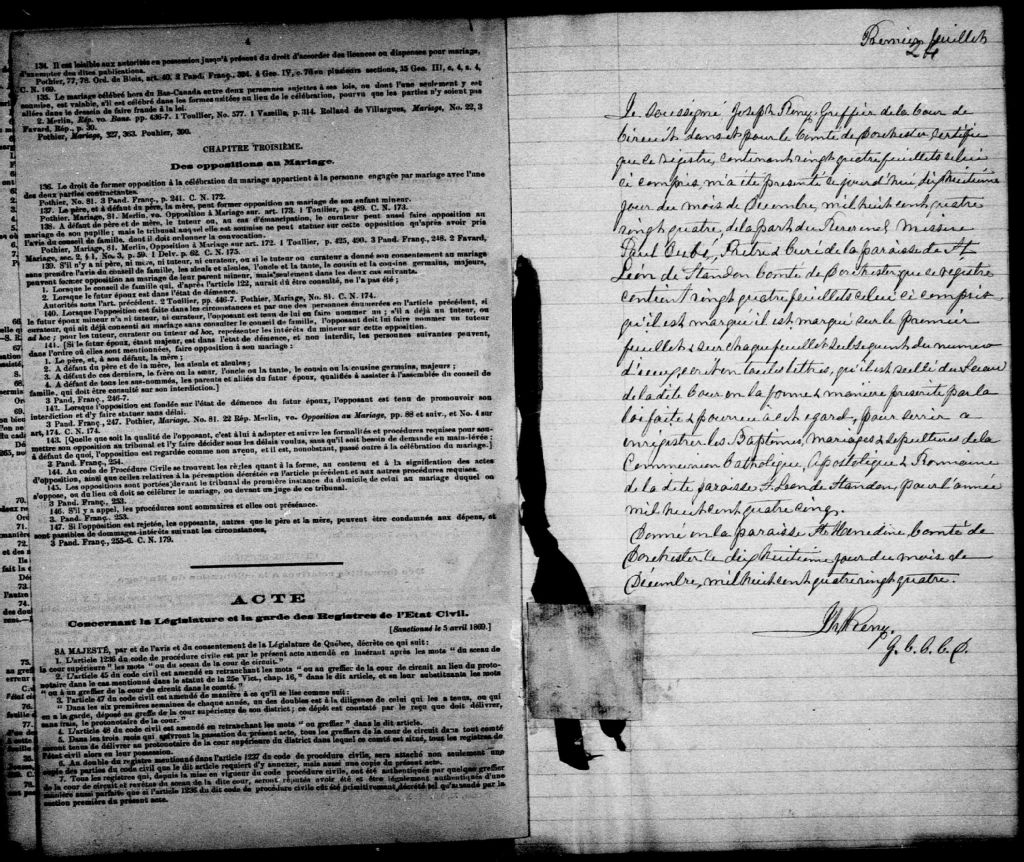 4
134. Il est loisible aux autorités en possession jusqu'à présent du droit d'accorder des licences ou dispenses pour mariage,
d'exempter des dites publications.
Pothier, 77, 78. Ord. de Blois, art. 40. 2 Pand. Franç., 394. 4 Geo. IV, c. 76 en plusieurs sections, 35 Geo. III, c. 4, s. 4,
C. N. 169.
135. Le mariage célébré hors du Bas-Canada entre deux personnes sujettes à ses lois, ou dont l'une seulement y est
soumise, est valable, s'il est célébré dans les formes usitées au lieu de la célébration, pourvu que les parties n'y soient pas
allées dans le dessein de faire fraude à la loi.
2. Merlin, Rép. vo. Bans. pp. 436-7. 1 Toullier, No. 577. 1 Vazeille, p. 314. Rolland de Villargues, Mariage, No. 22, 3
Favard, Rép., p. 30.
Pothier, Mariage, 327, 363. Pouhier, 390.
CHAPITRE TROISIÈME.
Des oppositions au Mariage.
136. Le droit de former opposition à la célébration du mariage appartient à la personne engagée par mariage avec l'une
des deux parties contractantes.
Pothier, No. 81. 3 Pand. Franç., p. 241. C. N. 172.
137. Le père, et à défaut du père, la mère, peut former opposition au mariage de son enfant mineur.
Pothier, Mariage, 81. Merlin, vo. Opposition à Mariage sur. art. 173. 1 Toullier, p. 489. C. N. 173.
138. A défaut de père et de mère, le tuteur ou, au cas d'émancipation, le curateur peut aussi faire opposition au
mariage de son pupille ; mais le tribunal auquel elle est soumise ne peut statuer sur cette opposition qu'après avoir pris
l'avis du conseil de famille, dont il doit ordonner la convocation.
Pothier, Mariage, 81. Merlin, Opposition à Mariage sur art. 172. 1 Toullier, p. 425, 490. 3 Pand. Franç., 248. 2 Favard,
Mariage, sec. 2, § 1, No. 3, p. 59. 1 Delv. p. 62. C. N. 175.
139. S'il n'y a ni père, ni mère, ni tuteur, ni curateur, ou si le tuteur ou curateur a donné son consentement au mariage
sans prendre l'avis du conseil de famille, les aïeuls et aïeules, l'oncle et la tante, le cousin et la cousine germains, majeurs,
peuvent former opposition au mariage de leur parent mineur, mais seulement dans les deux cas suivants.
1. Lorsque le conseil de famille qui, d'après l'article 122, aurait dû être consulté, ne l'a pas été ;
2. Lorsque le futur époux est dans l'état de démence.
Autorités sous l'art. précédent. 2 Toullier, pp. 446-7. Pothier, Mariage, No. 81. C. N. 174.
140. Lorsque l'opposition est faite dans les circonstances et par une des personnes énumérées en l'article précédent, si
le futur époux mineur n'a ni tuteur, ni curateur, l'opposant est tenu de lui en faire nommer un ; s'il a déjà un tuteur ou
curateur, qui ait déjà consenti au mariage sans consulter le conseil de famille, l'opposant doit lui faire nommer un tuteur
ad hoc ; pour les tuteur, curateur ou tuteur ad hoc, représenter les intérêts du mineur sur cette opposition.
141. [Si le futur époux, étant majeur, est dans l'état de démence, et non interdit, les personnes suivantes peuvent,
dans l'ordre où elles sont mentionnées, faire opposition à son mariage :
1. Le père, et, à son défaut, la mère ;
2. A défaut de père et de mère, les aïeuls et aïeules ;
3. A défaut de ces derniers, le frère ou la sœur, l'oncle ou la tante, le cousin ou la cousine germains, majeurs ;
4. A défaut de tous les sus-nommés, les parents et alliés du futur époux, qualifiés à assister à l'assemblée du conseil de
famille, qui doit être consulté sur son interdiction.]
3 Pand. Franç., 246-7.
142. Lorsque l'opposition est fondée sur l'état de démence du futur époux, l'opposant est tenu de promouvoir son
interdiction et d'y faire statuer sans délai.
3 Pand. Franç., 247. Pothier, Mariage, No. 81. 22 Rép. Merlin, vo. Opposition au Mariage, pp. 88 et suiv., et No. 4 sur
art. 174. C. N. 174
143. [Quelle que soit la qualité de l'opposant, c'est à lui à adopter et suivre les formalités et procédures requises pour sou-
mettre son opposition au tribunal et l'y faire décider sous les délais voulus, sans qu'il soit besoin de demande en main-levée ;
à défaut de quoi, l'opposition est regardée comme non avenu, et il est, nonobstant, passé outre à la célébration du mariage.]
3 Pand. Franç., 254.
144. Au code de Procédure Civile se trouvent les règles quant à la forme, au contenu et à la signification des actes
d'opposition, ainsi que celles relatives à la péremption décrétée en l'article précédent et aux autres procédures requises.
145. Les oppositions sont portées devant le tribunal de première instance du domicile de celui au mariage duquel on
s'oppose, ou du lieu où doit se célébrer le mariage, ou devant un juge de ce tribunal.
3 Pand. Franç., 253.
146. S'il y a appel, les procédures sont sommaires et elles ont préséance.
3. Pand. Franç., 253.
147. Si l'opposition est rejetée, les opposants, autres que le père et la mère, peuvent être condamnés aux dépens, et
sont passibles de dommages-intérêts suivant les circonstances.
3 Pand. Franç., 255-6. C. N. 179.
ACTE
Concernant la Législature et la garde des Registres de l'Etat Civil.
[Sanctionné le 5 avril 1869.]
SA MAJESTÉ, par et de l'avis et du consentement de la Législature de Québec, décrète ce qui suit :
1. L'article 1236 du code de procédure civile est par le présent acte amendé en insérant après les mots " du sceau de
la cour supérieure " les mots " ou du sceau de la cour de circuit."
2. L'article 45 du code civil est amendé en retranchant les mots " ou au greffier de la cour de circuit au lieu du proto-
notaire dans le cas mentionné dans le statut de la 25e Vict., chap. 16," dans le dit article, et en leur substituant les mots
" ou à un greffier de la cour de circuit dans le comté."
3. l'article 47 du code civil est amendé de manière à ce qu'il se lise comme suit :
" Dans les six premières semaines de chaque année, un des doubles est à la diligence de celui qui les a tenus, ou qui
en a la garde, déposé au greffe de la cour supérieure de son district ; ce dépôt est constaté par le reçu que doit délivrer,
sans frais, le protonotaire de la cour."
4. L'article 48 du code civil est amendé en retranchant les mots " ou greffier " dans le dit article.
5. Dans les trois mois qui suivront la passation du présent acte, tous les greffiers de la cour de circuit dans tout comté
seront tenus de délivrer au protonotaire de la cour supérieure du district dans lequel ce comté est situé, tous les registres de
l'état civil alors en leur possession.
6. Au double du registre mentionné dans l'article 1237 du code de procédure civile, sera attaché non seulement une
copie des parties du code civil que le dit article requiert d'y annexer, mais aussi une copie du présent acte.
7. Tous les registres qui, depuis la mise en vigueur du code procédure civile, ont été authentiqués par quelque greffier
de la cour de circuit et revêtus du sceau de la dite cour, seront réputés avoir été et être légalement authentiqués d'une
manière aussi parfaite que si l'article 1236 du dit code de procédure civile eût été primitivement décrété tel qu'amendé par la
section première du présent acte.
Premier feuillet
24
Je soussigné Joseph Remy, Greffier de la Cour de
Circuit dans et pour le Comté de Dorchester certifie
que ce régistre, contenant vingt quatre feuillets celui
ci compris m'a été présenté ce jour d'hui dix huitième
jour du mois de Decembre, mil huit cent quatre
vingt quatre, de la part du Reverend Messire
Paul Dubé, Prêtre & Curé de la paroisse de St
Léon de Standon Comté de Dorchester, que ce régistre
contient vingt quatre feuillets celui ci compris,
qu'il est marqué il est marqué sur le premier
feuillet & sur chaque feuillet subsequent du numero
d'iceux écrit en toutes lettres, qu'il est scellé du sceau
de la dite Cour en la forme & manière présente par la
loi faite & pourvue à cet egard, pour servir a
enregistrer les Baptêmes, mariages & sépultures de la
Communion Catholique Apostolique & Romaine
de la dite paroisse St Léon de Standon, pour l'année
mil huit cent quatre cinq.
Donné en la paroisse Ste Henedine, Comté de
Dorchester le dix huitième jour du mois de
Décembre, mil huit cent quatre vingt quatre.
G. C. C. C. D.